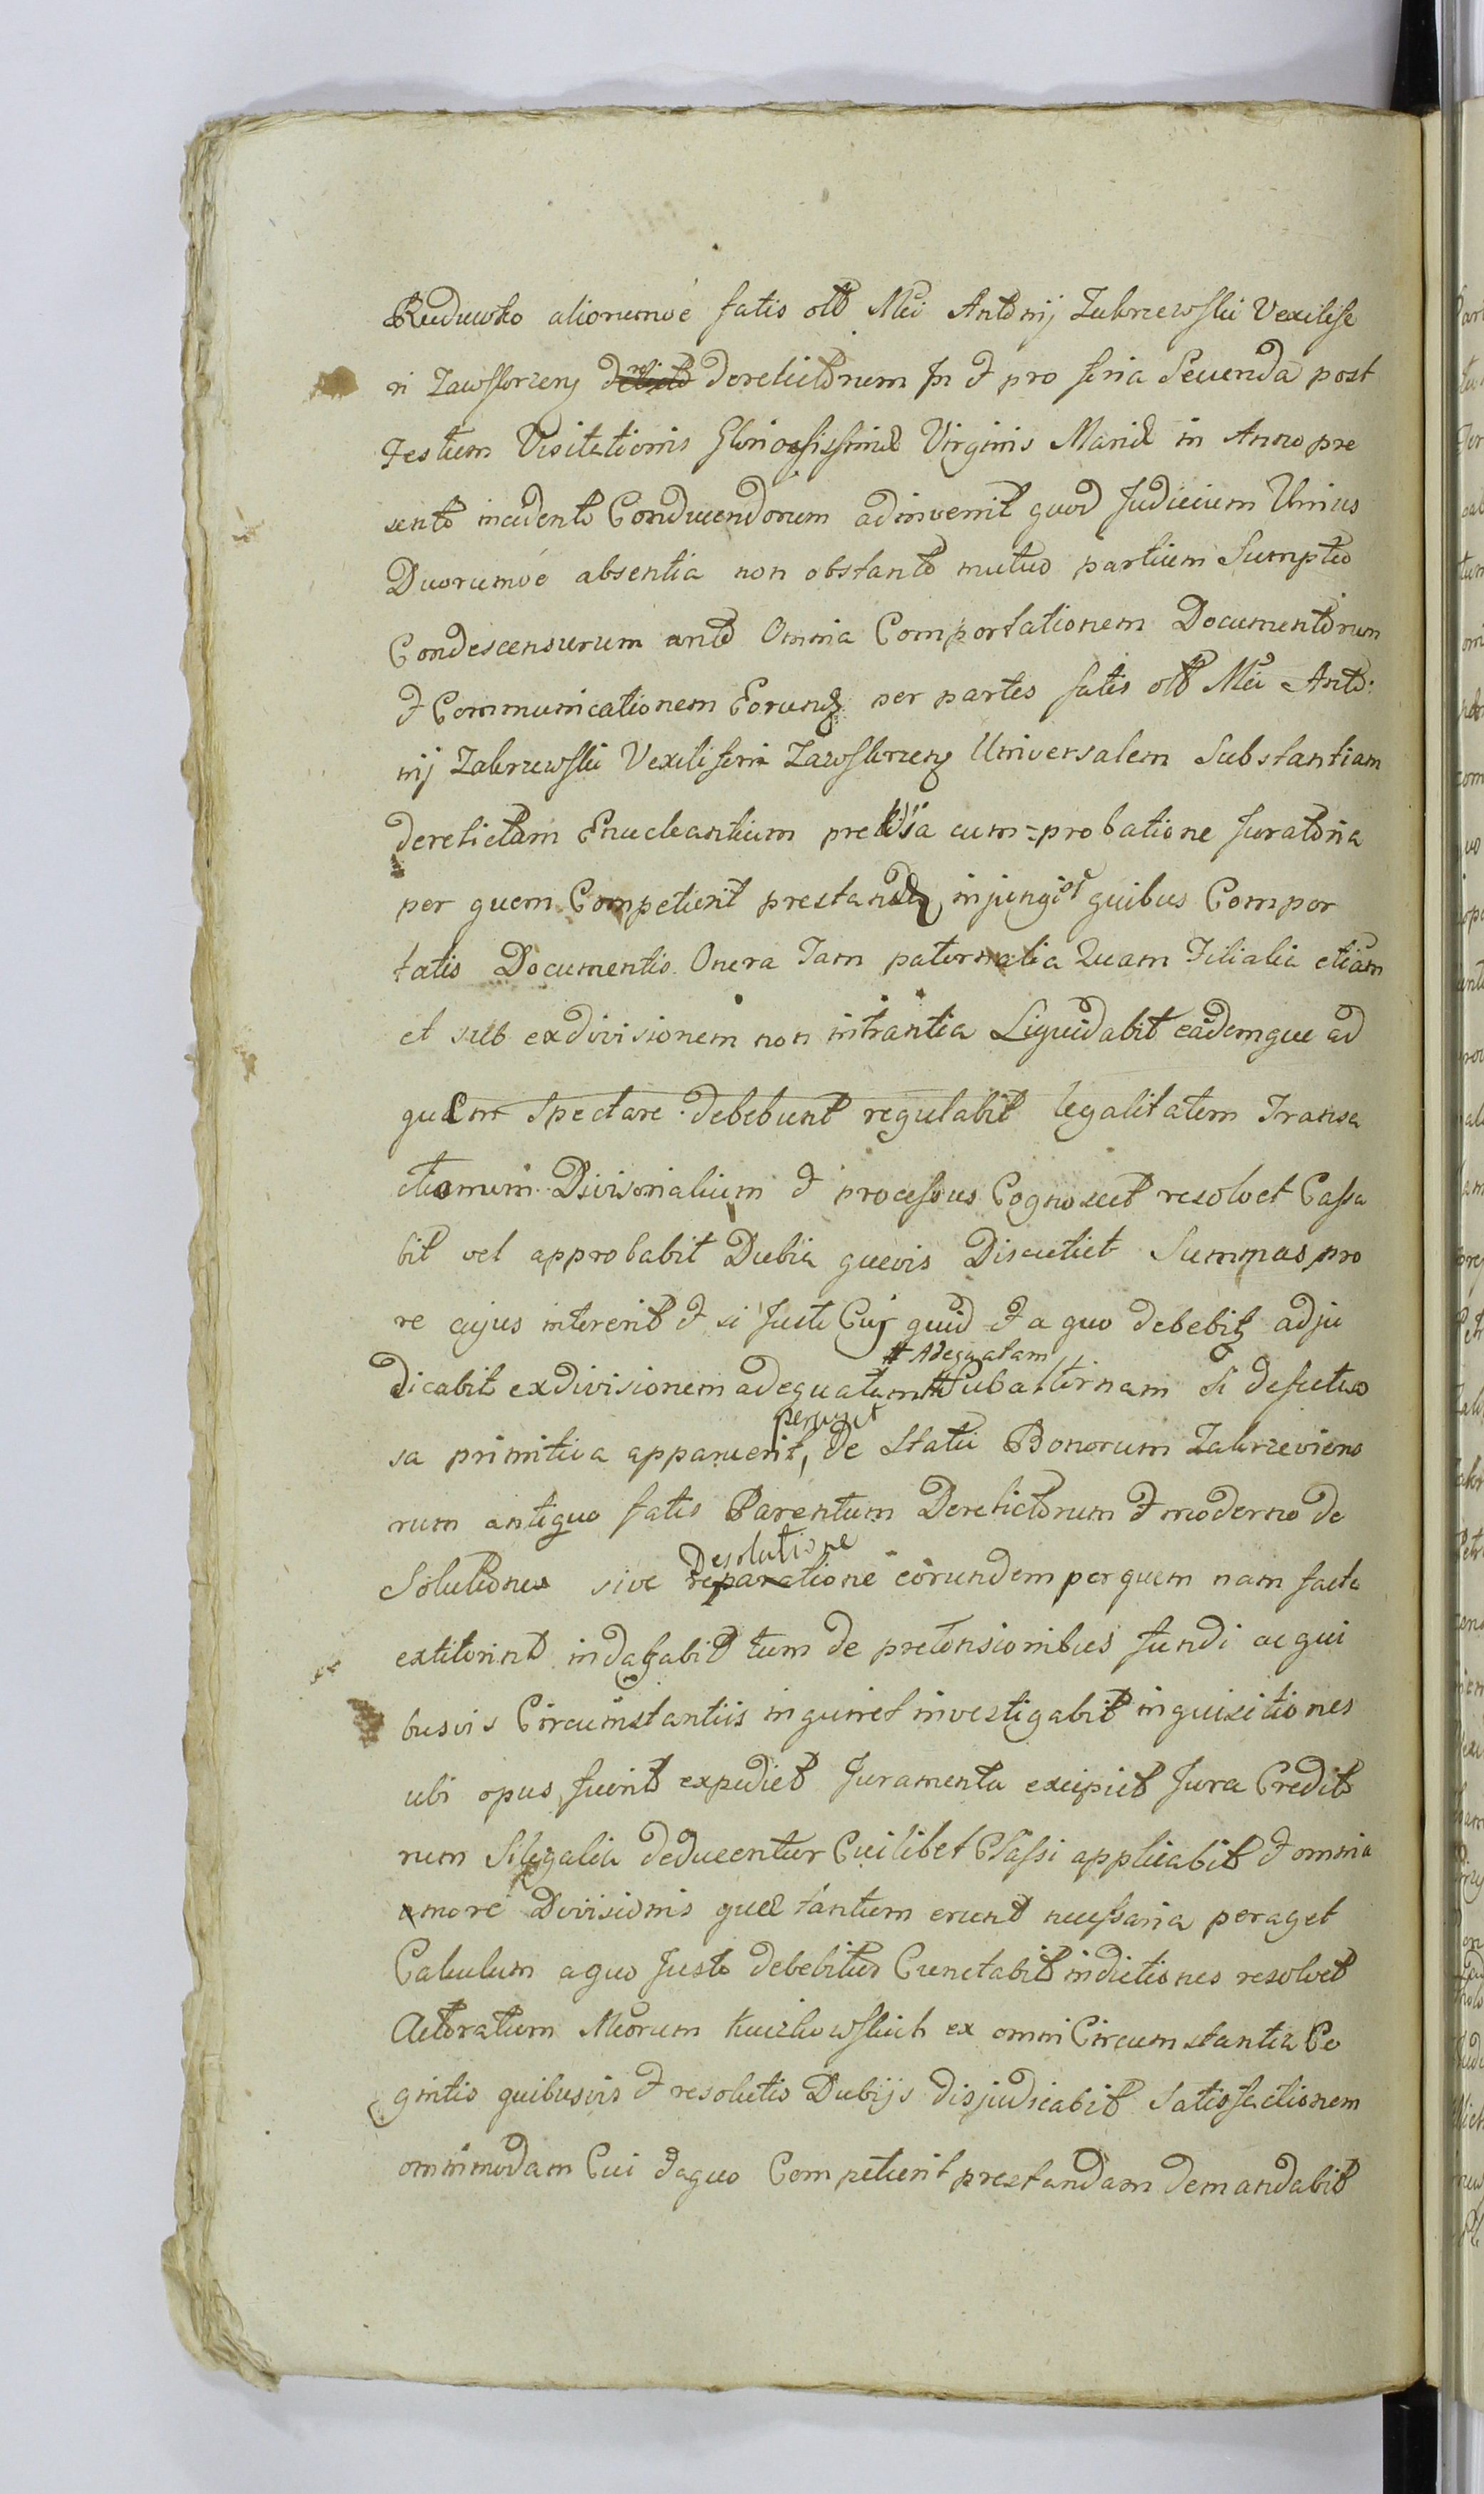 Ruduwko aliorumvé fatis olt Mci Antonij Zakrzewski Vexilife
ri Zawskrzens derelictorum in et pro feria Secunda post
Festum Visitationis Gloriosissimæ Virginis Mariæ in Anno præ
sente incidente Conducendorum adinvenit quod Judicium Unius
Duorumvé absentia non obstante mutuo partium Sumptuo
Condescensurum ante Omnia Comportationem Documentorum
et Communicationem Eorundq per partes fatis olt Mci Anto:
nij Zakrzewski Vexiliferi Zawskrzens Universalem Substantiam
derelictam Enucleantium previsa cum=probatione Juratoria
per quem Competierit prestandq injungit quibus Compor
tatis Documentis Onera Tam paternalia Quam Filialia etiam
et sub exdivisionem non intrantia Liquidabit eademque ad
quem Spectare debebunt regulabit legalitatem Transa
ctionum Divisionalium et processus Cognoscet resolvet Cassa
bit vel approbabit Dubia quevis Discutiet Summas pro
re cujus intererit et si Juste Cuj quid et a quo debebitq adju
# Adequatam
dicabit exdivisionem adequatam # Subalternam si defectuo
perinvit
sa primitiva apparuerit, de Statu Bonorum Zakrzeviens
rum antiquo fatis Parentum Derelictorum et moderno de
Desolatione
Solutiones sive reparatione eorundem per quem nam facte
extiterint indagabit tum de pretensionibus fundi ac qui
busvis Circumstantiis inquiret investigabit inquisitiones
ubi opus fuerit expediet Juramenta excipiet Jura Credito
rum Si legalia deducentur Cuilibet Classi applicabit et omnia
more Divisionis quæ tantum erunt necessaria peraget
Calculum a quo Juste debebitur Cunctabit indictiones resolvet
Actoratum Mcorum Kuczkowskich ex omni Circumstantia Co
gnitis quibusvis et resolutis Dubijs disjudicabit Satisfactionem
omnimodam Cui et a quo Competierit prestandam demandabit